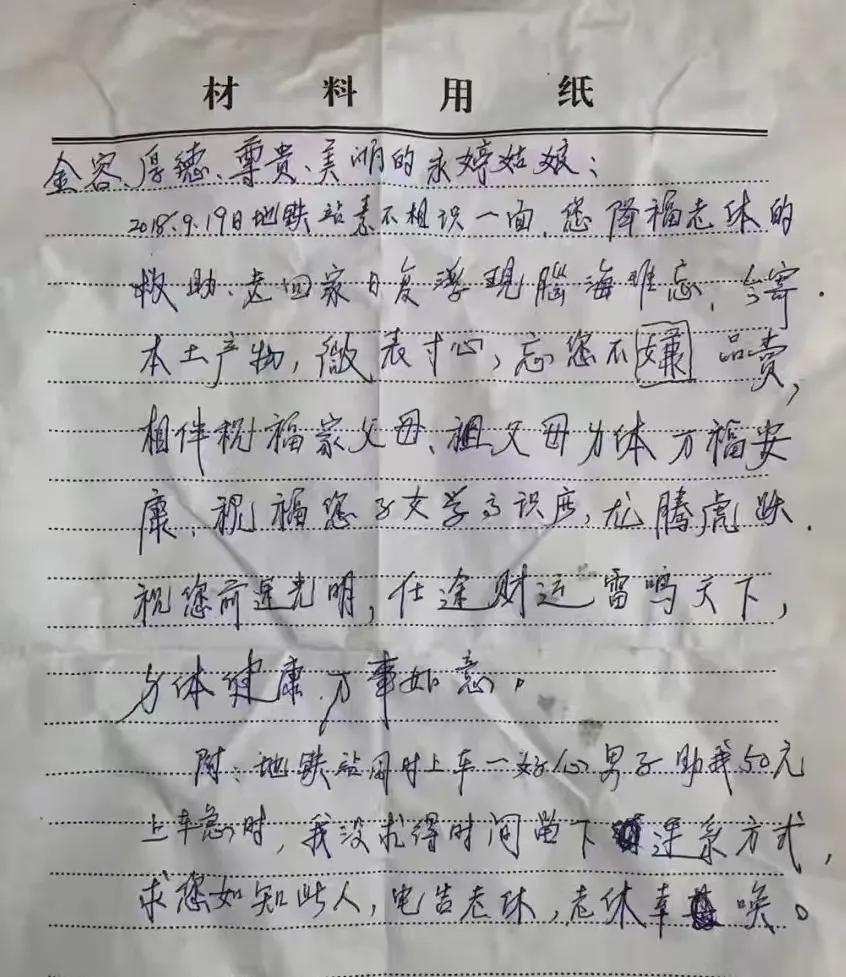 材料用纸
金容、厚德、尊贵、美丽的永婷姑娘:
2018.9.19日地铁站素不相识一面,您降福老休的
救助、老回家日复浮现腦海难忘,今寄.
本土产物,微表寸心,忘您不嫌 品卖,
相伴祝福家父母、祖父母身体万福安
康、祝福您子女学高识广,龙腾虎跃.
祝您前途光明,仕途财运雷鸣天下,
身体健康.万事如意。
附:地铁站同时上车一好心男子助我50元
上车急时,我没求得时间留下 连系方式,
求您如知此人,电告老休,老休幸 唤。